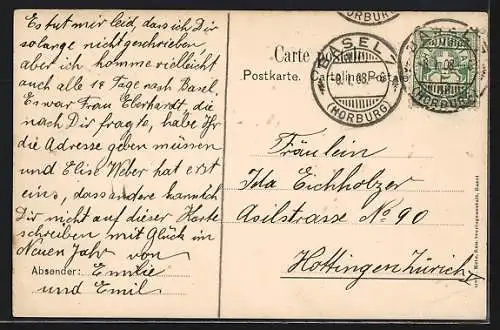 Es tut mir leid, dass ich Dir
so lange nicht geschrieben,
aber ich komme vielleicht
auch alle 14 Tage nach Basel.
Es war Frau Eberhardt, die
nach Dir fragte, habe Ihr
die Adresse geben müssen
und Elise Weber hat erst
eins, das andere kann ich
Dir nicht auf dieser Karte
schreiben mit Glück im
Neuen Jahr von
Absender: Emilie
und Emil
(HORBURG)
Carte
Postkarte. Cartolina Postale
BASEL
8.I.08
(HORBURG)
8.I.08
(HORBURG)
Fräulein
Ida Eichholzer
Asilstrasse No 90
Hottingen Zürich V